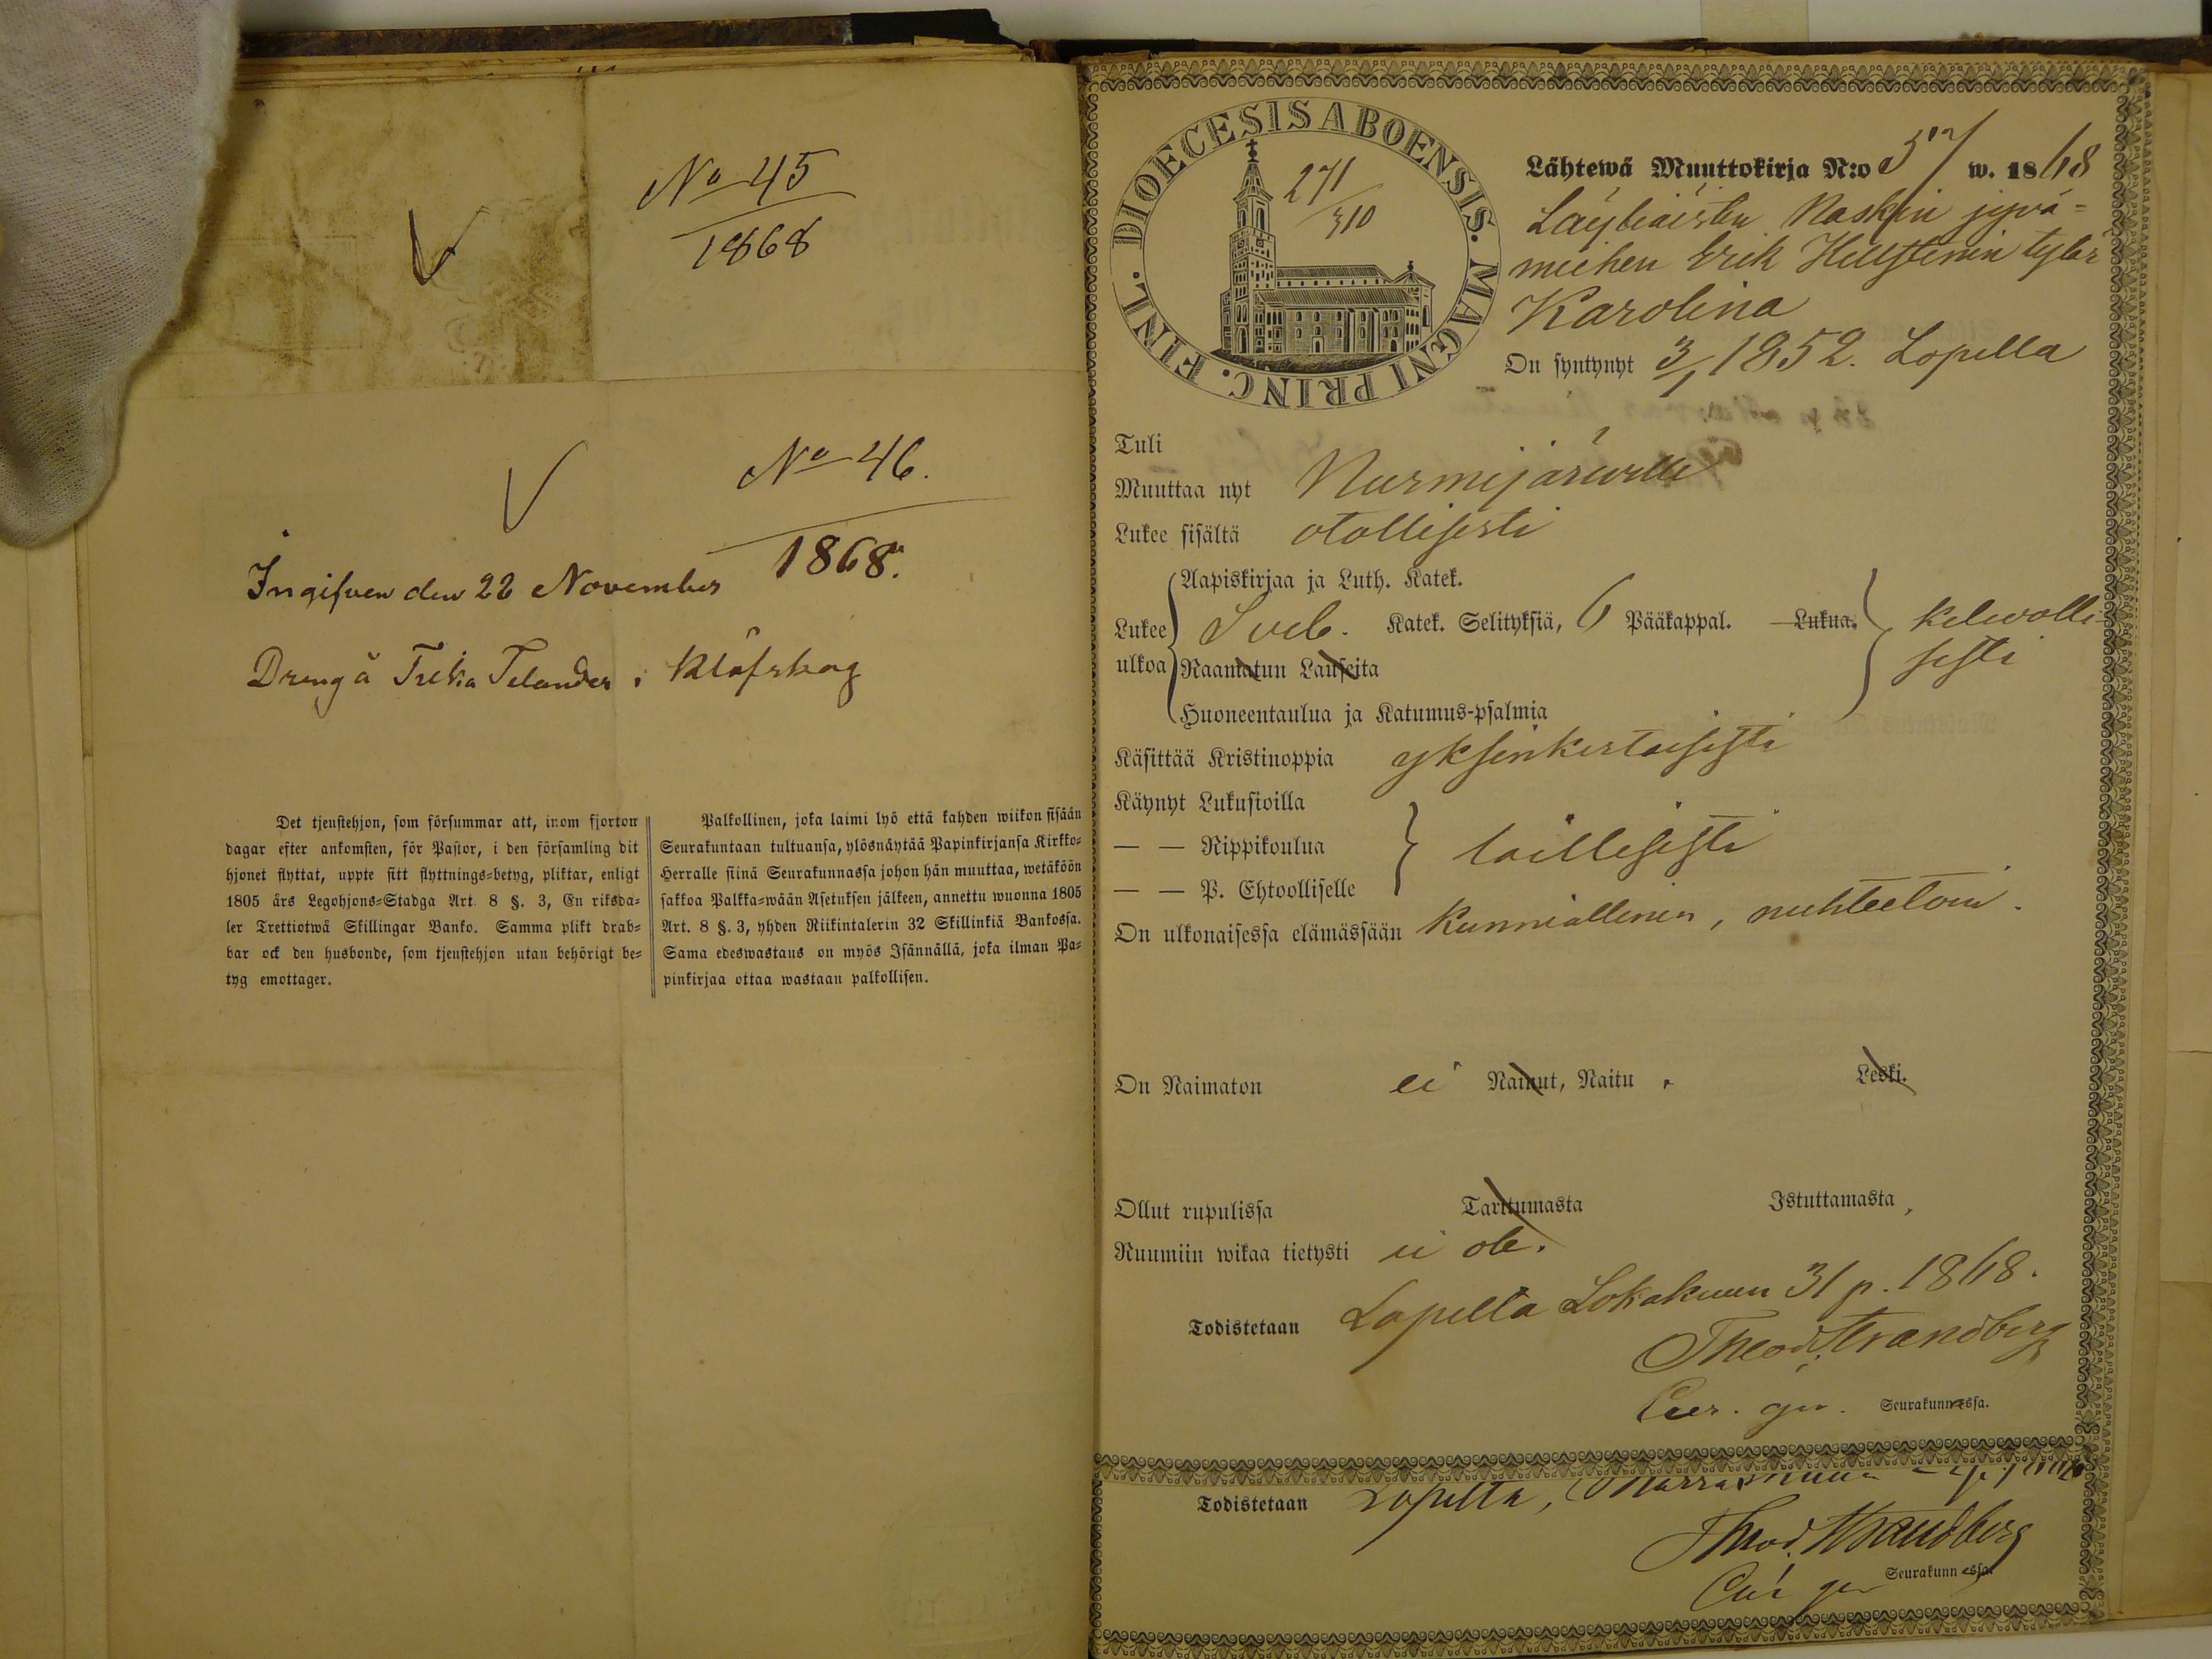 No 45
1868
No 46.
1868.
Ingifven den 22 November
Dreng å Treka Telander i Klöfskog
Det tjenstehjon, som försummar att, inom fjorton
dagar efter ankomsten, för Pastor, i den församling dit
hjonet flyttat, uppte sitt flyttnings=betyg, pliktar, enligt
1805 års Legohjons=Stadga Art. 8 §. 3, En riksda=
ler Trettiotwå Skillingar Banko. Samma plikt drab=
bar ock den husbonde, som tjenstehjon utan behörigt be=
tyg emottager.
Palkollinen, joka laimi lyö että kahden wiikon sisään
Seurakuntaan tultuansa, ylösnäytää Papinkirjansa Kirkko=
Herralle siinä Seurakunnassa johon hän muuttaa, wetäköön
sakkoa Palkka=wään Asetuksen jälkeen, annettu wuonna 1805
Art. 8 §. 3, yhden Riikintalerin 32 Skillinkiä Bankossa.
Sama edeswastaus on myös Isännällä, joka ilman Pa=
pinkirjaa ottaa wastaan palkollisen.
DIOECESIS ABOENSIS. MAGNI PRINC. FINL.
271
310
Lähtewä Muuttokirja N:o 57 w. 1868
Läyliäisten Naskin jyvä=
miehen Erik Hellstenin tytär
Karolina
On syntynyt 3/1 1852. Lopella
Tuli
Muuttaa nyt Nurmijärwelle
Lukee sisältä otollisesti
Aapiskirjaa ja Luth. Katek.
Lukee Sveb. Katek. Selityksiä, 6 Pääkappal. Lukua. kelwolli=
ulkoa Raamatun Lauseita sesti
Huoneentaulua ja Katumus-psalmia
Käsittää Kristinoppia yksinkertaisesti
Käynyt Lukusioilla
— — Rippikoulua laillisesti
— — P. Ehtoolliselle
On ulkonaisessa elämässään Kunniallinen, nuhteetoin.
On Naimaton ei Nainut, Naitu. Leski.
Ollut rupulissa Tarttumasta Istuttamasta,
Ruumiin wikaa tietysti ei ole.
Todistetaan Lopelta Lokakuun 31 p. 1868.
Theod. Strandberg
Cur. ger. Seurakunnassa.
Todistetaan Lopelta, Marraskuun
Theod. Strandberg
Cur ger Seurakunnassa.